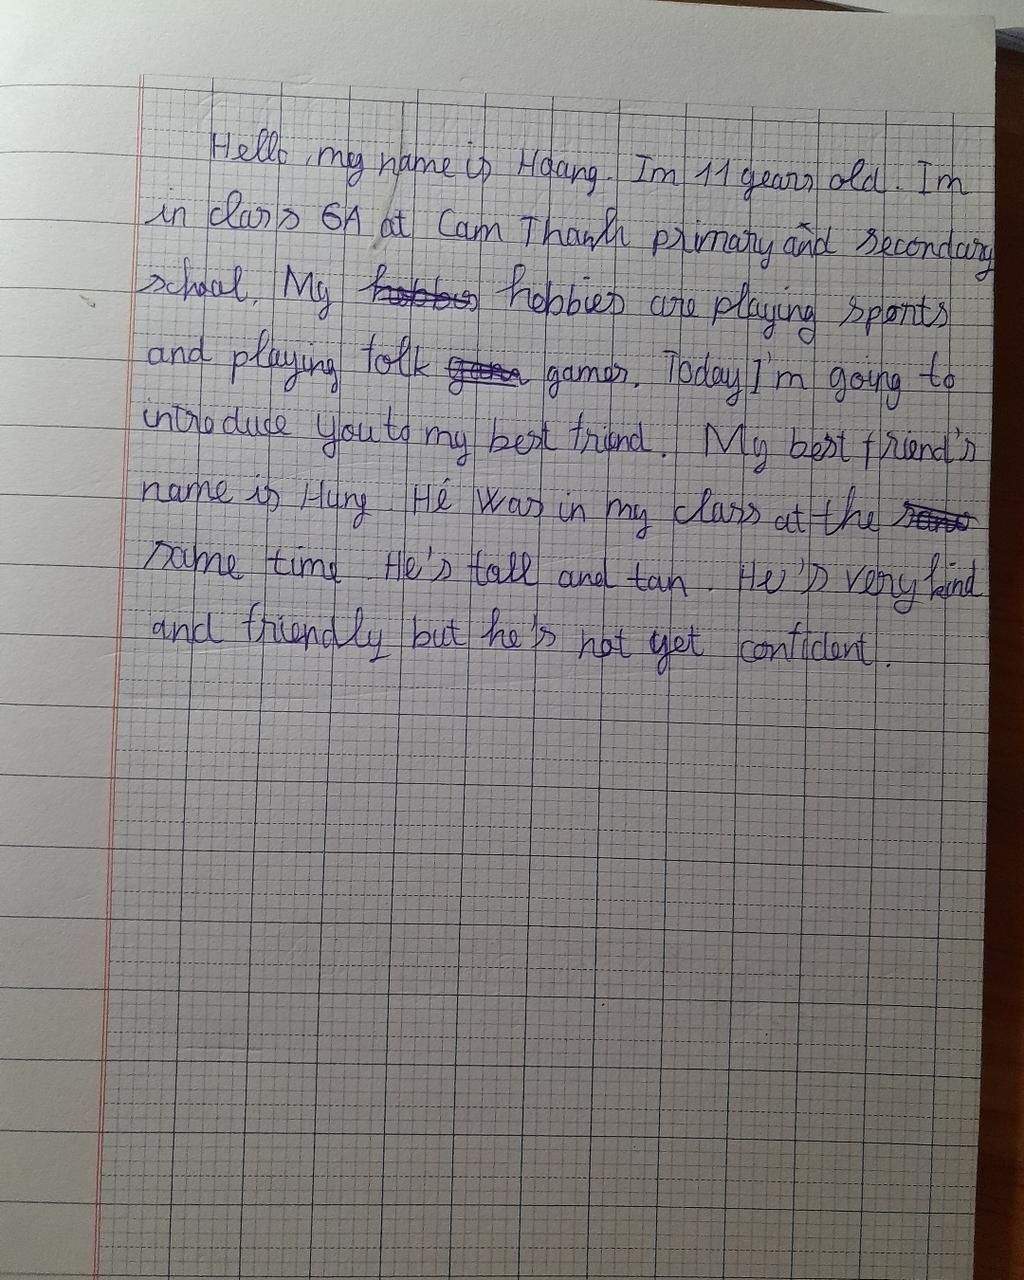 Hello, my name is Hoang. Im 11 years old. Im
in class 6A at Cam Thanh primary and secondary
school. My hobbies are playing sports
and playing folk games. Today I'm going to
introduce you to my best friend. My best friend's
name is Hung. He was in my class at the
same time. He's tall and tan. He's very kind
and friendly but he's not yet confident.